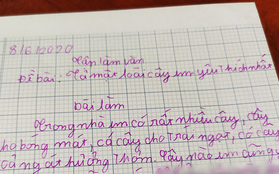 8/6/2020
Tập làm văn
Đề bài: Tả một loài cây em yêu thích nhất
bài làm
Trong nhà em có rất nhiều cây, cây
bóng mát, cả cây cho trái ngọt, có cây
ngát hương thơm. Cây nào em cũng